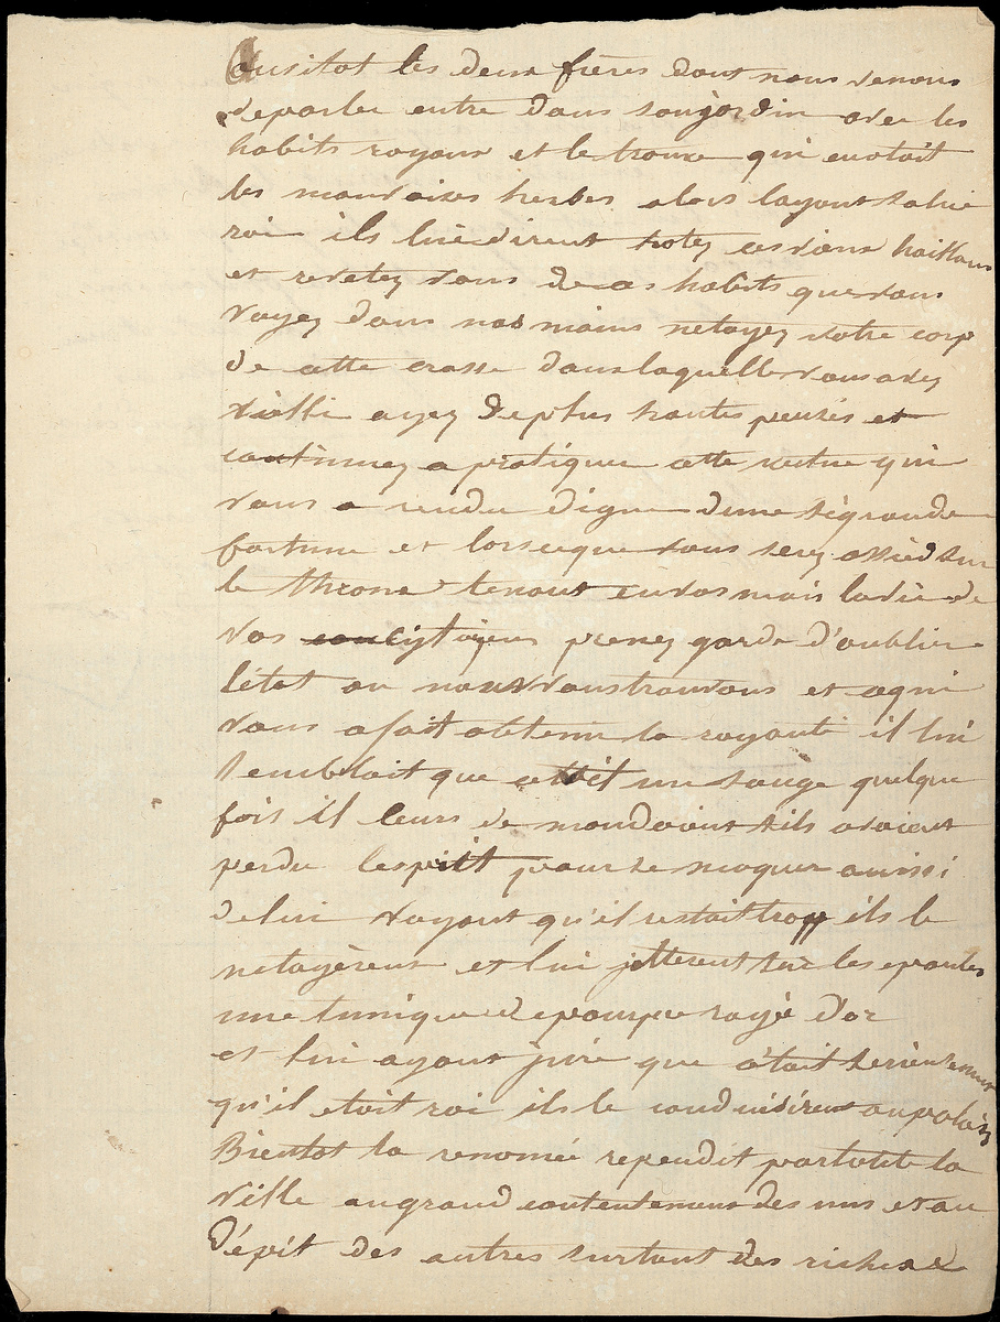 Ausitot les deux frères dont nous venons
deparler entre dans sonjardin avec les
habits royaux et le trouve qui enotait
les mauvaises herbes alors layant salué
roi ils lui dirent hotez ces viens haillons
et revetez vous de ces habits que vous
voyez dans nos mains netoyez votre corp
de cette crasse danslaquelle vousavez
vielli ayez deplus hautes pensés et
continuez a pratiquer cette vertue qui
vous a rendu digne dune sigrande
fortune et lorseque vous serez assied sur
le throne tenant envosmais lavie de
vos concytoyens prenez garde d'oublier
létat ou nous voustrouvons et cequi
vous afait obtenir la royauté il lui
semblait que cettoit un songe quelque
fois il leurs demandaient sils avaient
perdu lesprit pourse moquer aussi
delui voyant qu'il restaittrop ils le
netoyèrent et lui jetterent sur les epaules
une tunique depourpre rayé d'or
et lui ayant juré que cétait serieusement
qu'il etoit roi ils le conduisirent aupalais
Bientot la renomée rependit partoute la
ville augrand contentement des uns et au
dépit des autres surtout des riches